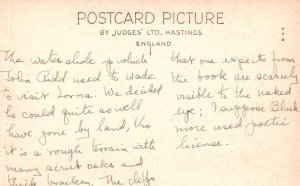 POSTCARD PICTURE
BY JUDGES' LTD., HASTINGS
ENGLAND
The water slide up which
John Ridd used to wade
to visit Lorna. We decided
he could quite as well
have gone by land, tho
it is a rough terrain with
many scrub oakes and
thick bracken. The cliffs
that one expects from
the book are scarcely
visible to the naked
eye; I suppose Black
more used poetic
license.